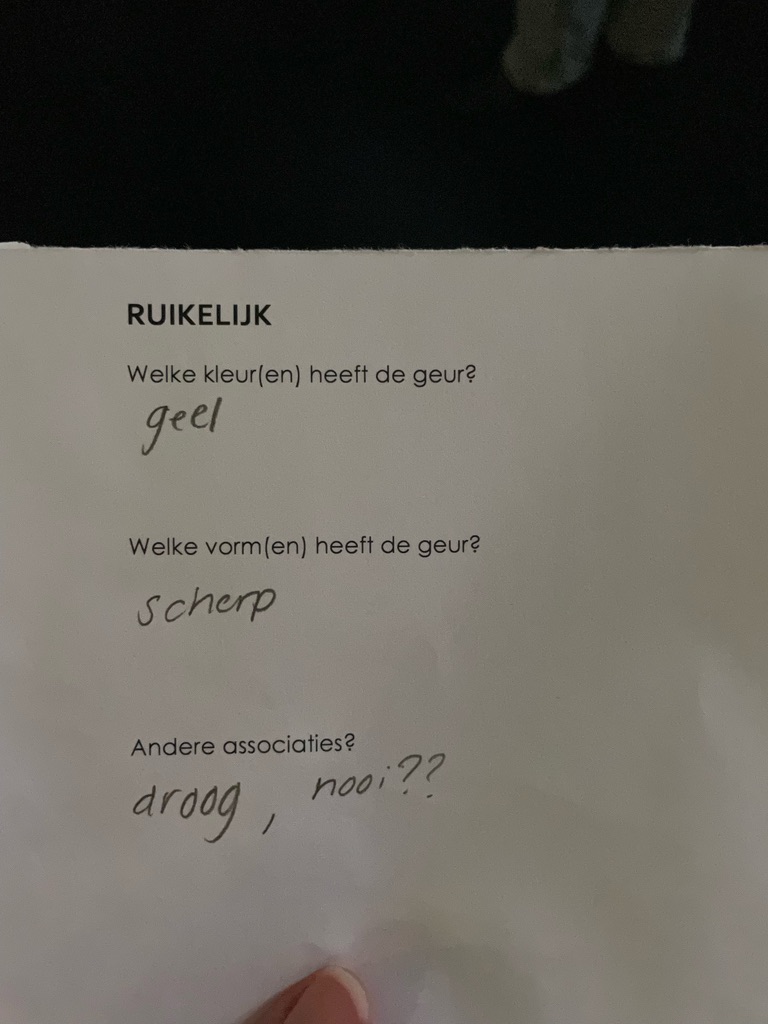 RUIKELIJK
Welke kleur(en) heeft de geur?
geel
Welke vorm(en) heeft de geur?
scherp
Andere associaties?
droog, nooi??